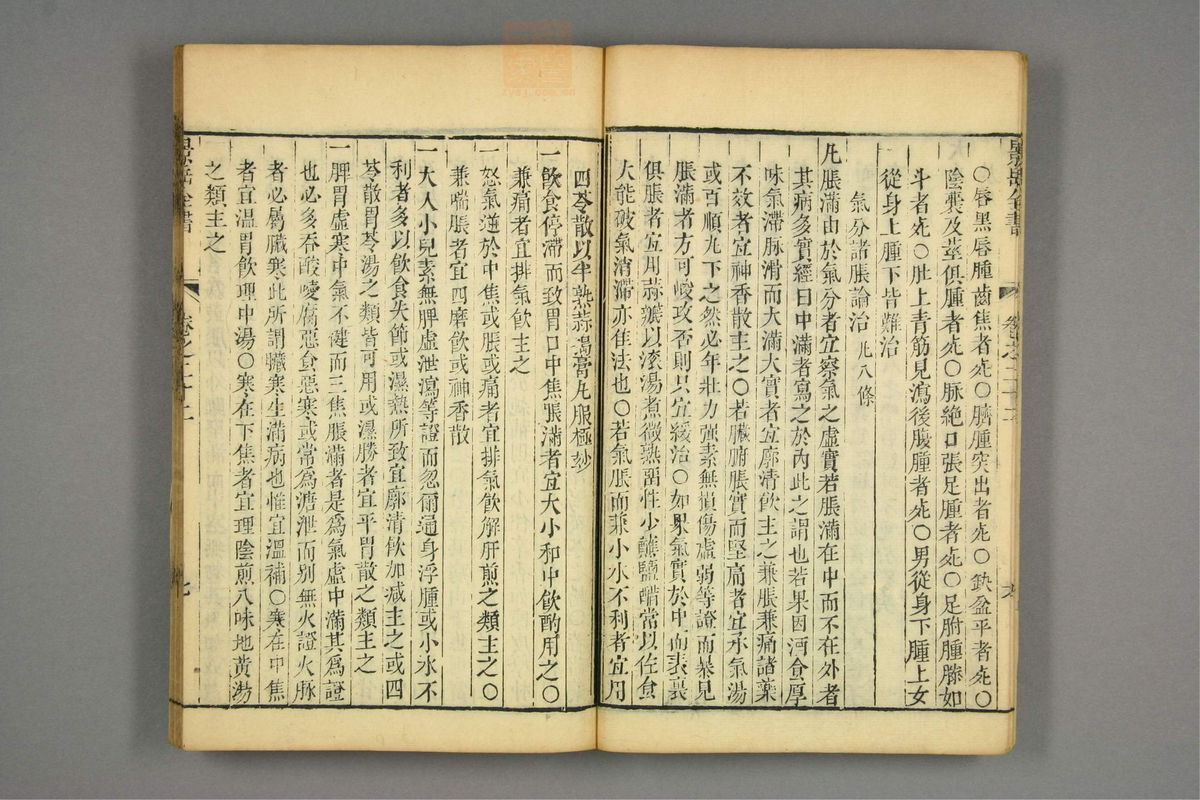 ○唇黑唇腫齒焦者死○臍腫突出者死○缺盆平者死○
陰囊及莖俱腫者死○脉絶口張足腫者死○足胕腫膝如
斗者死○肚上青筋見瀉後腹腫者死○男從身下腫上女
從身上腫下皆難治
氣分諸脹論治 凡八條
凡脹滿由於氣分者宜察氣之虛實若脹滿在中而不在外者
其病多實經曰中滿者寫之於內此之謂也若果因酒食厚
味氣滯脉滑而大滿大實者宜廓清飲主之兼脹兼痛諸藥
不效者宜神香散主之○若臟腑脹實而堅痛者宜承氣湯
或百順丸下之然必年壯力強素無損傷虛弱等證而暴見
脹滿者方可峻攻否則只宜緩治○如果氣實於中而表裏
俱脹者宜用蒜瓣以滾湯煮微熟畱性少蘸鹽醋常以佐食
大能破氣消滯亦佳法也○若氣脹而兼小水不利者宜用
四苓散以半熟蒜搗膏丸服極妙
一飲食停滯而致胃口中焦脹滿者宜大小和中飲酌用之○
兼痛者宜排氣飲主之
一怒氣逆於中焦或脹或痛者宜排氣飲解肝煎之類主之○
兼喘脹者宜四磨飲或神香散
一大人小兒素無脾虛泄瀉等證而忽爾通身浮腫或小水不
利者多以飲食失節或濕熱所致宜廓清飲加減主之或四
苓散胃苓湯之類皆可用或濕勝者宜平胃散之類主之
一脾胃虛寒中氣不健而三焦脹滿者是爲氣虛中滿其爲證
也必多吞酸噯腐惡食惡寒或常爲溏泄而別無火證火脉
者必屬臟寒此所謂臟寒生滿病也惟宜溫補○寒在中焦
者宜溫胃飲理中湯○寒在下焦者宜理陰煎八味地黃湯
之類主之
景岳全書
七